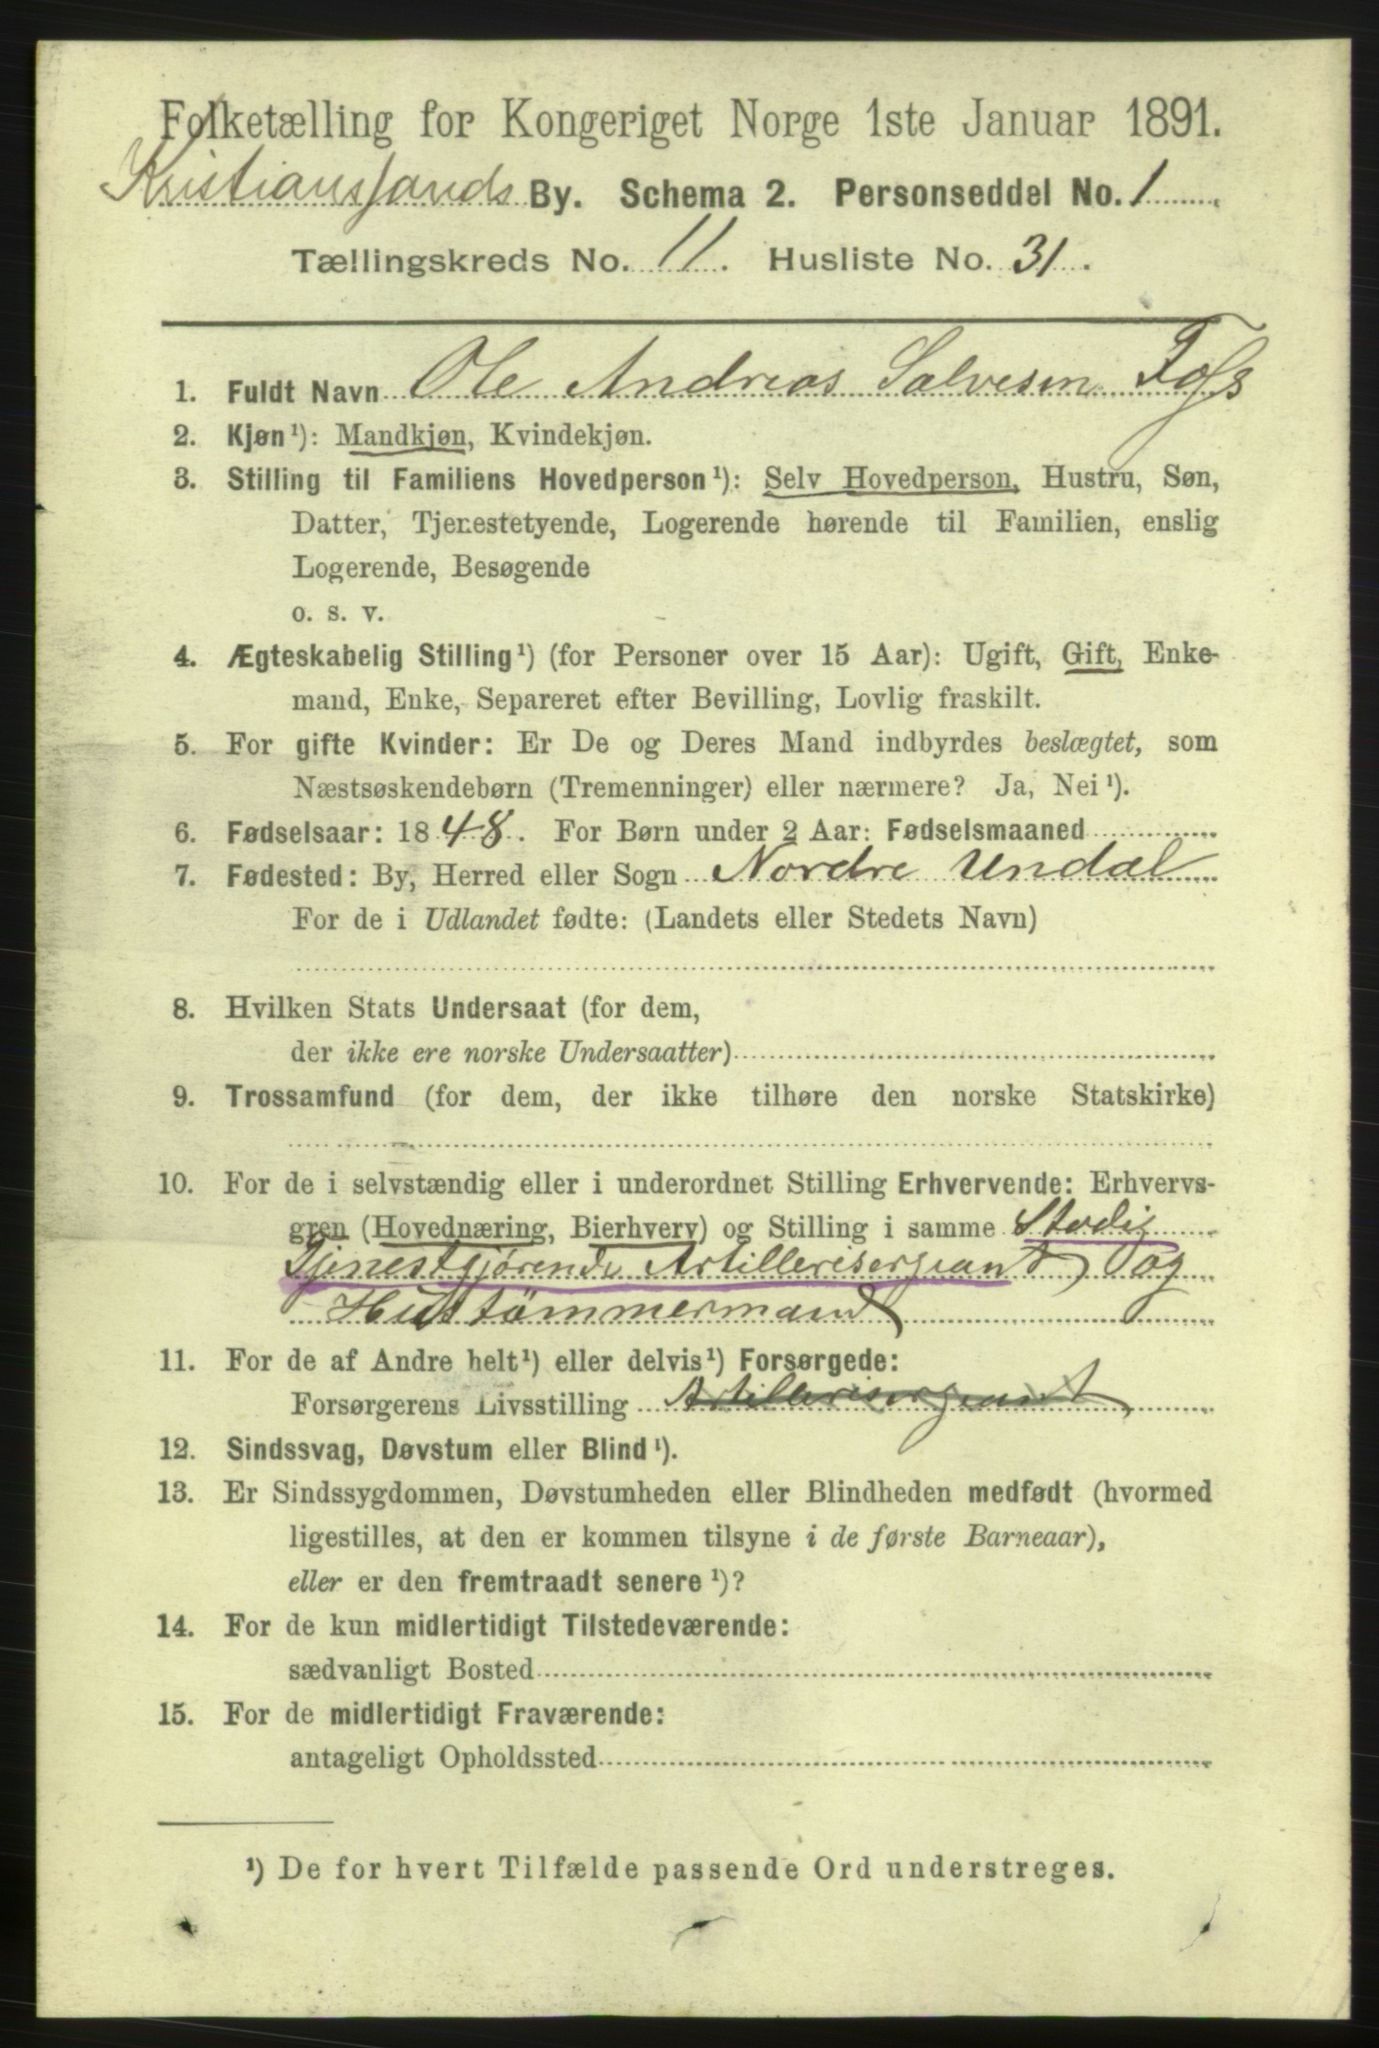 Folketælling for Kongeriget Norge 1ste Januar 1891.
Kristianssands By. Schema 2. Personseddel No. 1
Tællingskreds No. 11. Husliste No. 31.
1. Fuldt Navn Ole Andreas Salvesen Foss
2. Kjøn¹): Mandkjøn, Kvindekjøn.
3. Stilling til Familiens Hovedperson¹): Selv Hovedperson, Hustru, Søn,
Datter, Tjenestetyende, Logerende hørende til Familien, enslig
Logerende, Besøgende
o. s. v.
4. Ægteskabelig Stilling¹) (for Personer over 15 Aar): Ugift, Gift, Enke-
mand, Enke, Separeret efter Bevilling, Lovlig fraskilt.
5. For gifte Kvinder: Er De og Deres Mand indbyrdes beslægtet, som
Næstsøskendebørn (Tremenninger) eller nærmere? Ja, Nei¹).
6. Fødselsaar: 1848. For Børn under 2 Aar: Fødselsmaaned
7. Fødested: By, Herred eller Sogn Nordre Undal
For de i Udlandet fødte: (Landets eller Stedets Navn)
8. Hvilken Stats Undersaat (for dem,
der ikke ere norske Undersaatter)
9. Trossamfund (for dem, der ikke tilhøre den norske Statskirke)
10. For de i selvstændig eller i underordnet Stilling Erhvervende: Erhvervs-
gren (Hovednæring, Bierhverv) og Stilling i samme Stadig
Tjenestgjørende Artillerisergeant, og
Hustømmermand
11. For de af Andre helt¹) eller delvis¹) Forsørgede:
Forsørgerens Livsstilling Artillerisergeant,
12. Sindssvag, Døvstum eller Blind¹).
13. Er Sindssygdommen, Døvstumheden eller Blindheden medfødt (hvormed
ligestilles, at den er kommen tilsyne i de første Barneaar),
eller er den fremtraadt senere¹)?
14. For de kun midlertidigt Tilstedeværende:
sædvanligt Bosted
15. For de midlertidigt Fraværende:
antageligt Opholdssted
¹) De for hvert Tilfælde passende Ord understreges.